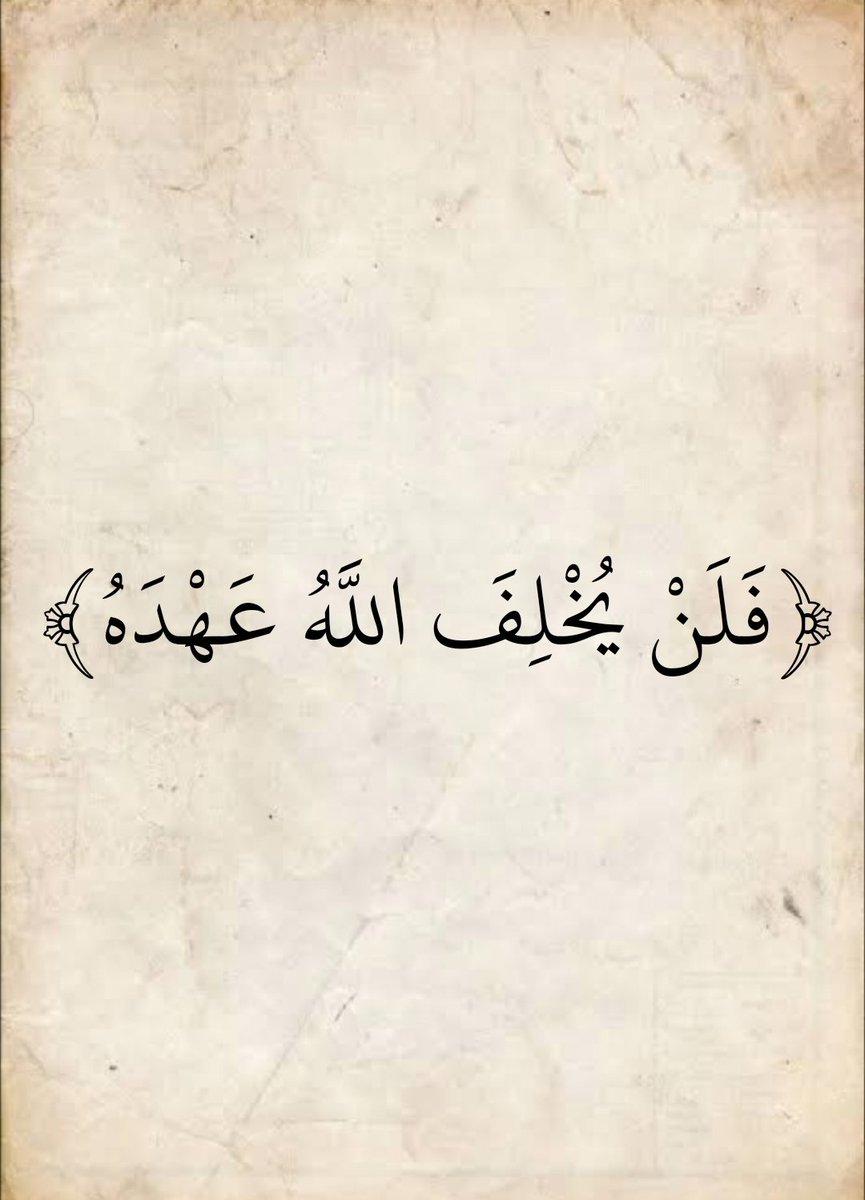 ﴿فَلَنْ يُخْلِفَ اللَّهُ عَهْدَهُ﴾